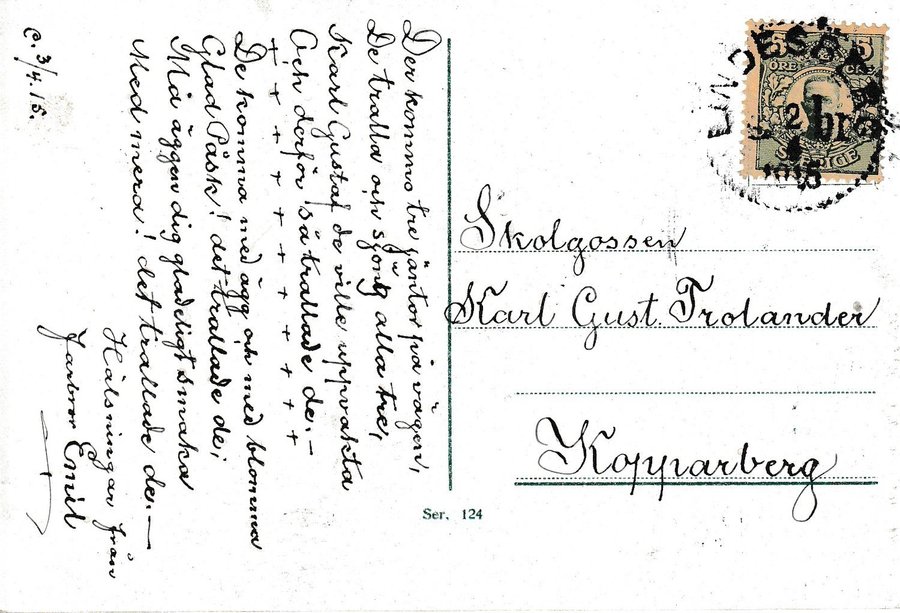 C. 3/4.15.
Der kommo tre jäntor på vägen,
De tralla och sjöng alla tre,
Karl Gustaf de ville uppvakta
Och derför så trallade de.—
+ + + + + + + + + + +
De komma med ägg och med blomma
Glad Påsk! det trallade de;
Må äggen dig gladeligt smaka
Med mera! det trallade de.—
Hälsningar från
Farbror Emil
LINDESBERG
2 br
4
1915
5 ÖRE 5
SVERIGE
Skolgossen
Karl Gust. Trolander
Kopparberg
Ser. 124